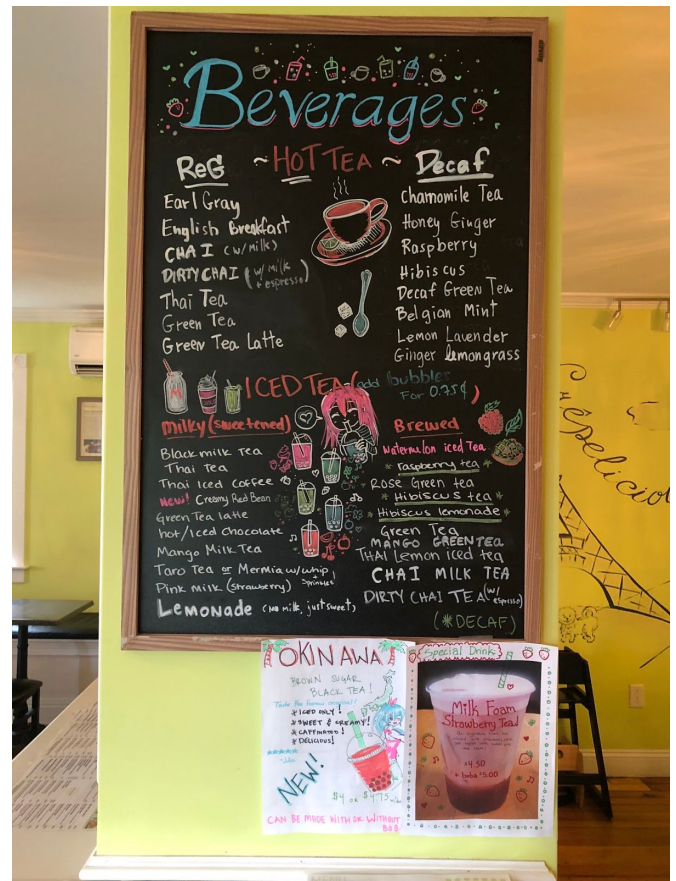 Beverages
~ HOT TEA ~
ReG
Earl Gray
English Breakfast
CHAI (w/milk)
DIRTY CHAI (w/ milk + espresso)
Thai Tea
Green Tea
Green Tea Latte
Decaf
Chamomile Tea
Honey Ginger
Raspberry
Hibiscus
Decaf Green Tea
Belgian Mint
Lemon Lavender
Ginger lemongrass
ICED TEA (add bubbles
For 0.75¢)
Milky (sweetened)
Black milk Tea
Thai Tea
Thai Iced Coffee
New! Creamy Red Bean
Green Tea latte
hot/Iced chocolate
Mango Milk Tea
Taro Tea or Mermia w/whip
+ sprinkles
Pink milk (strawberry)
Lemonade (No milk, just sweet)
Brewed
Watermelon iced Tea
* raspberry tea *
Rose Green tea
* Hibiscus tea *
* Hibiscus lemonade *
Green Tea
MANGO GREEN TEA
THAI Lemon iced tea
CHAI MILK TEA
DIRTY CHAI TEA (w/ espresso)
(*DECAF)
Crêpelicio
OKINAWA
BROWN SUGAR
BLACK TEA!
* ICED ONLY!
* SWEET & CREAMY!
* CAFFINATED!
* DELICIOUS!
NEW!
$4 or $4.75
CAN BE MADE WITH OR WITHOUT
BOB
Special Drink:
Milk Foam
Strawberry Tea!
$4.50
+ boba $5.00